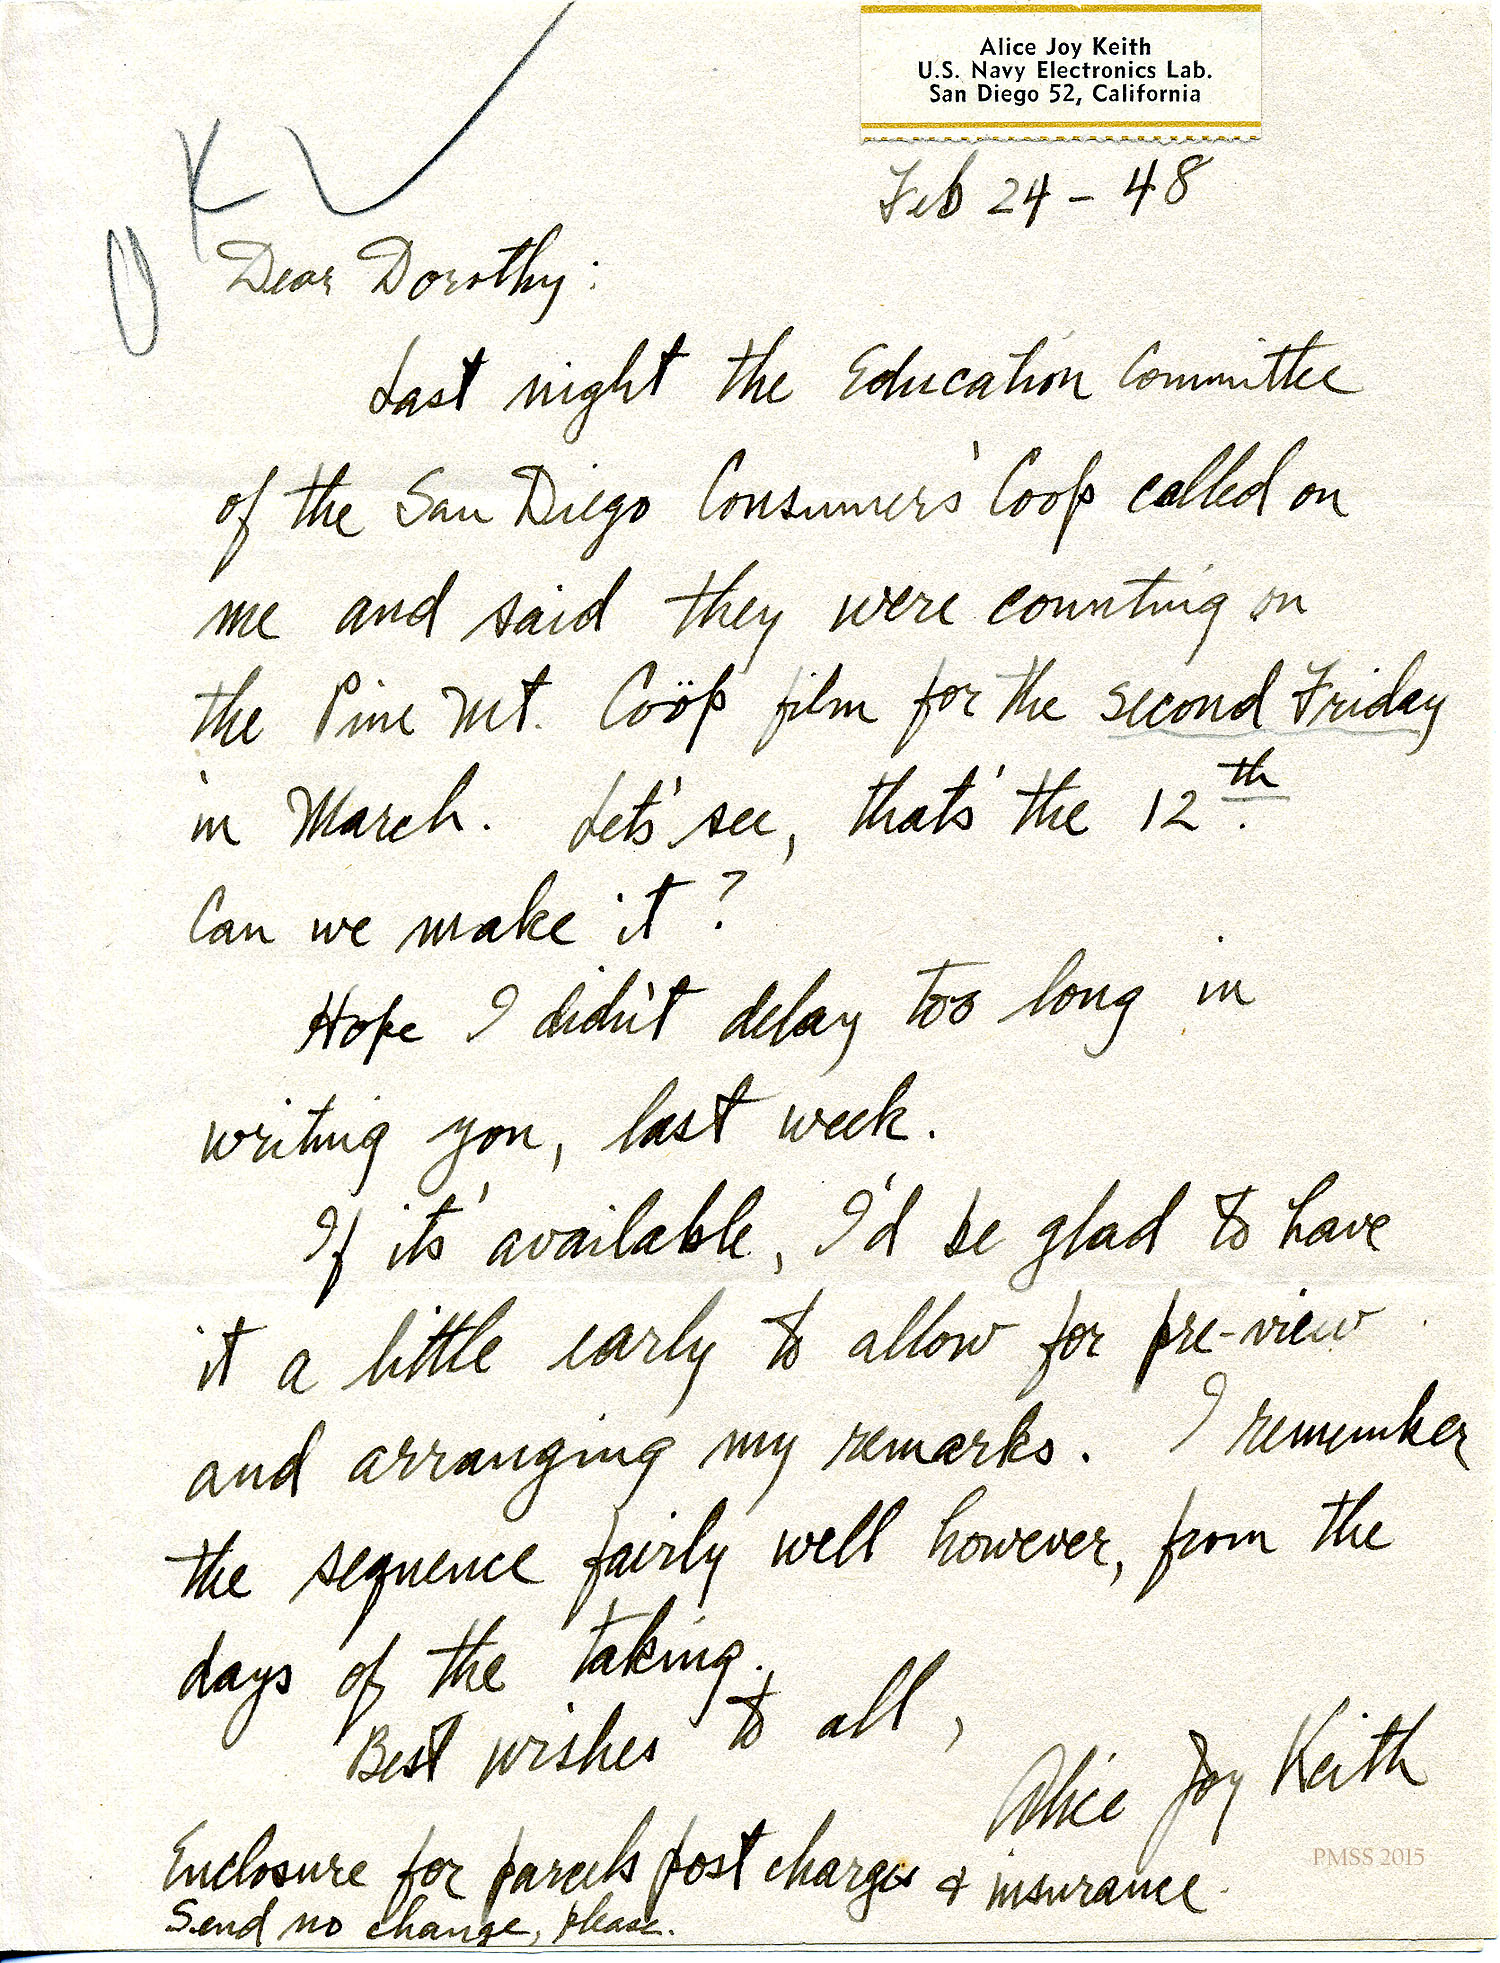 Alice Joy Keith
U.S. Navy Electronics Lab.
San Diego 52, California
OK ✓
Feb 24 - 48
Dear Dorothy:
Last night the Education Committee
of the San Diego Consumers' Coop called on
me and said they were counting on
the Pine Mt. Coöp film for the second Friday
in March. Let's see, that's the 12th.
Can we make it?
Hope I didn't delay too long in
writing you, last week.
If it's available, I'd be glad to have
it a little early to allow for pre-view
and arranging my remarks. I remember
the sequence fairly well however, from the
days of the taking.
Best wishes to all,
Alice Joy Keith
Enclosure for parcels post charges & insurance.
Send no change, please.
PMSS 2015